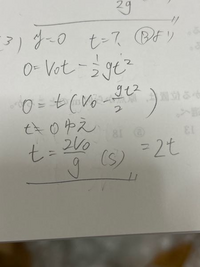 2g
(3) y=0 t=? ③より
0=V₀t-½gt²
0=t(V₀-gt²/2)
t≠0ゆえ
t=2V₀/g (s) =2t